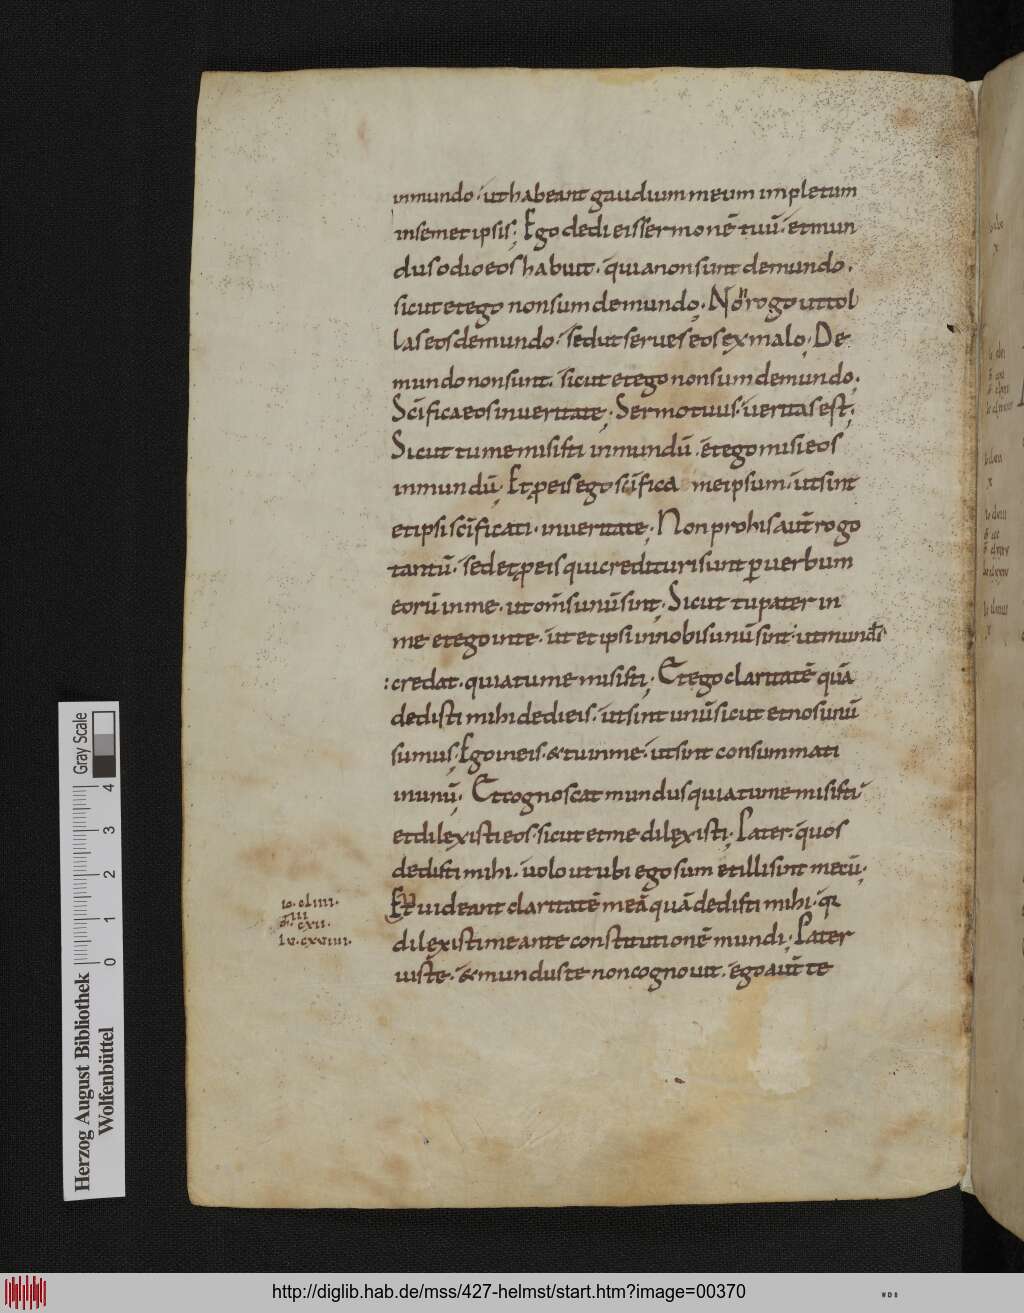 inmundo · uthabeant gaudium meum impletum
insemetipsis; Ego dedi eis sermonē tuū · et mun
dus odio eos habuit · quia non sunt demundo ·
sicut et ego non sum demundo; Non rogo ut tol
las eos demundo · sed ut serues eos ex malo; De
mundo non sunt · sicut et ego non sum demundo;
Scīfica eos inueritate; Sermo tuus · ueritas est;
Sicut tu me misisti inmundū · et ego misi eos
inmundū; Et p eis ego scīfico meipsum · ut sint
et ipsi scīficati · inueritate; Non pro his aut̄ rogo
tantū · sed et p eis qui credituri sunt p uerbum
eorū in me · ut om̄s unū sint; Sicut tu pater in
me et ego inte · ut et ipsi innobis unū sint · ut mund'
: credat · quia tu me misisti; Et ego claritatē quā
dedisti mihi dedi eis · ut sint unū sicut et nos unū
sumus; Ego ineis · & tu in me · ut sint consummati
inunū; Et cognoscat mundus quia tu me misisti
et dilexisti eos · sicut et me dilexisti; Pater · quos
dedisti mihi · uolo ut ubi ego sum et illi sint mecū;
Et uideant claritatē meā quā dedisti mihi · q
dilexisti me ante constitutionē mundi; Pater
iuste · & mundus te non cognouit · ego aut̄ te
io · cliiii ·
m̄ · cxii ·
lu · cxviiii ·
Herzog August Bibliothek
Wolfenbüttel
0 1 2 3 4
Gray Scale
http://diglib.hab.de/mss/427-helmst/start.htm?image=00370